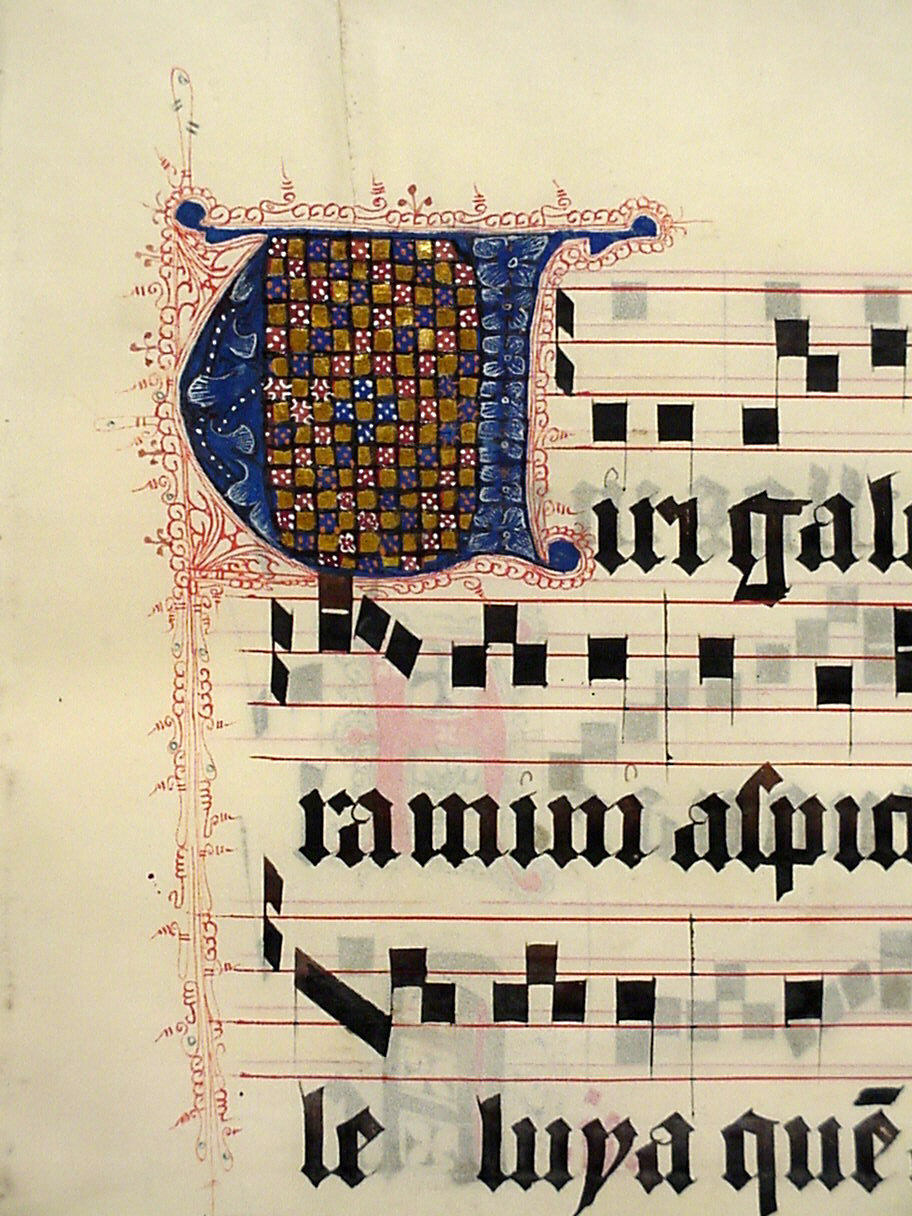 Viri gal
ra mini aſpic
le luya quē